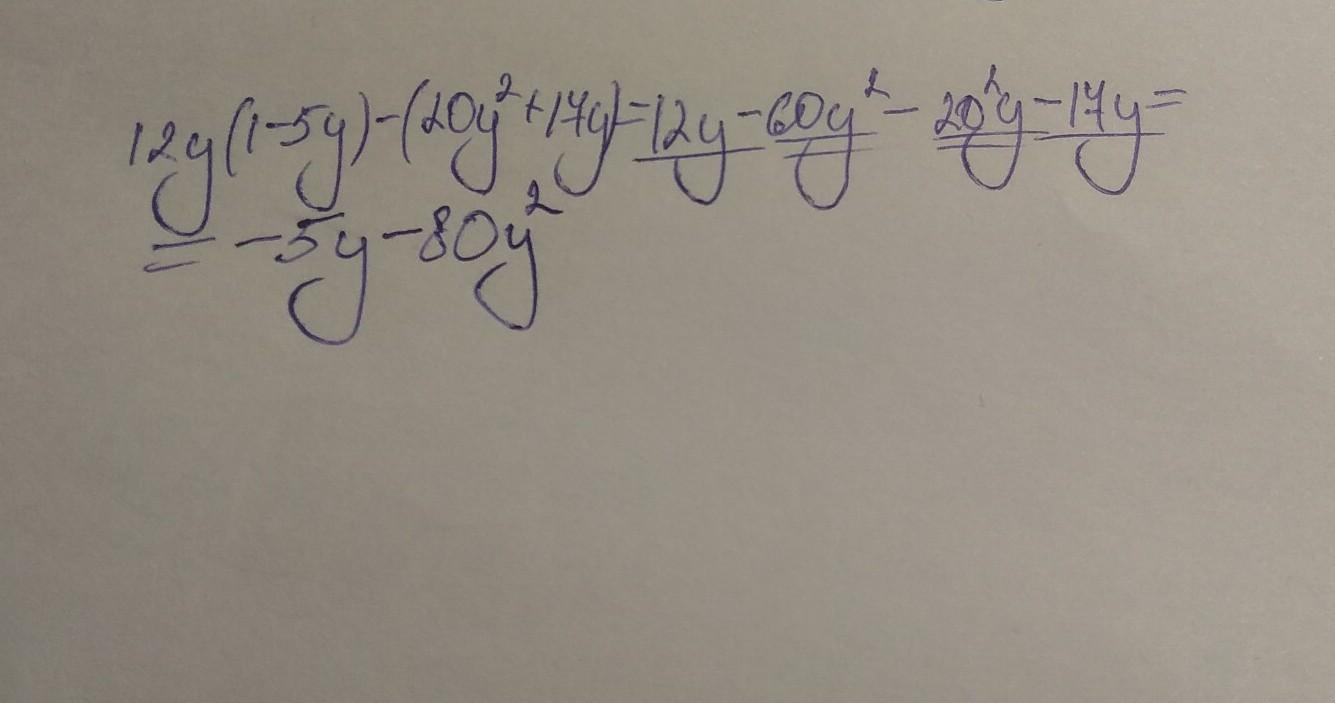 12y(1-5y)-(20y²+17y)=12y-60y²-20²y-17y=
=-5y-80y²